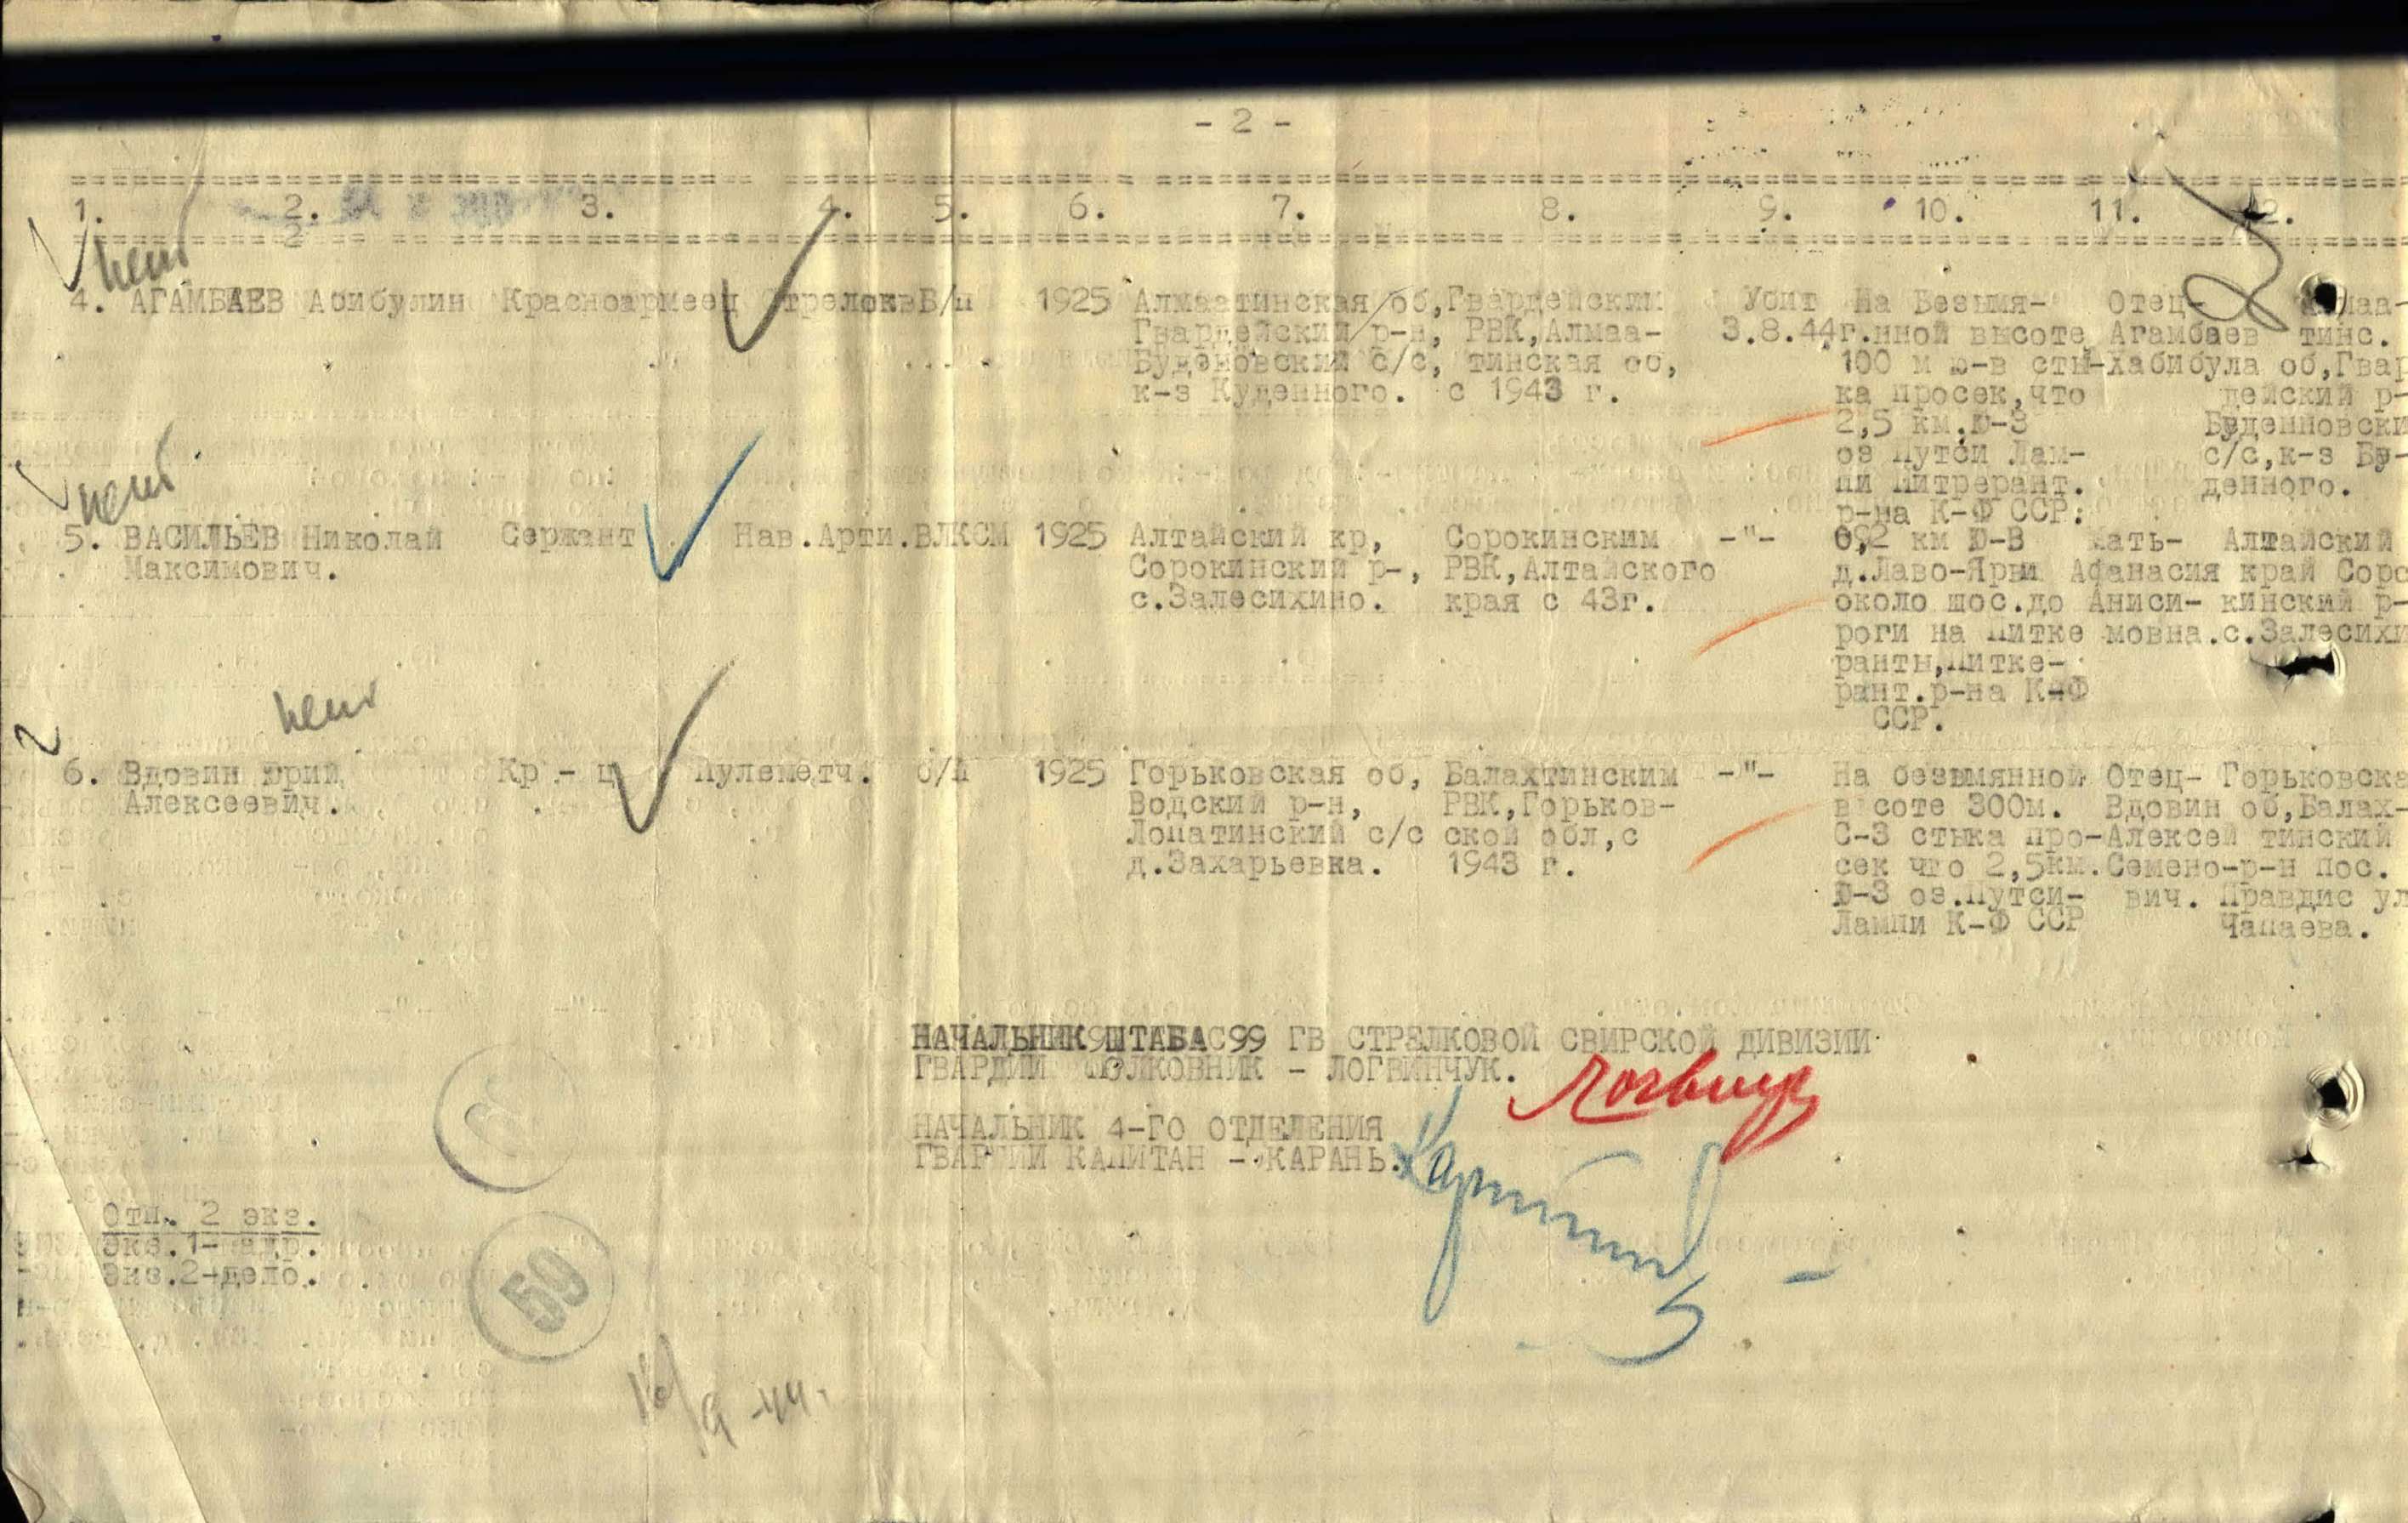 - 2 -
1. 2. 3. 4. 5. 6. 7. 8. 9. 10. 11. 12.
2
нет
4. АГАМБАЕВ Абибулин Красноармеец Стрелок Б/п 1925 Алмаатинская об, Гвардейским Убит На Безымя- Отец- Алмаа-
Гвардейский р-н, РВК, Алмаа- 3.8.44г. нной высоте Агамбаев тинс.
Буденовский с/с, тинская об, 100 м ю-в сты- Хабибула об, Гвар
к-з Куденного. с 1943 г. ка просек, что дейский р-
2,5 км. Ю-З Буденновски
оз Путси Лам- с/с, к-з Бу-
пи Питрерант. денного.
р-на К-Ф ССР.
нет
5. ВАСИЛЬЕВ Николай Сержант Нав. Арти. ВЛКСМ 1925 Алтайский кр, Сорокинским -"- 0,2 км Ю-В Мать- Алтайский
Максимович. Сорокинский р-, РВК, Алтайского д. Лаво-Ярви Афанасия край Соро
с. Залесихино. края с 43г. около шос. до Аниси- кинский р-
роги на Питке мовна. с. Залесихи
ранты, Питке-
рант. р-на К-Ф
ССР.
нет
6. Вдовин Юрий Кр - ц Пулеметч. б/п 1925 Горьковская об, Балахтинским -"- На безымянной Отец- Горьковска
Алексеевич. Водский р-н, РВК, Горьков- высоте 300м. Вдовин об, Балах-
Лопатинский с/с ской обл, с С-З стыка про- Алексей тинский
д. Захарьевка. 1943 г. сек что 2,5км. Семено- р-н пос.
Ю-З оз. Путси- вич. Правдис ул
Лампи К-Ф ССР Чапаева.
НАЧАЛЬНИК ШТАБА 99 ГВ СТРЕЛКОВОЙ СВИРСКОЙ ДИВИЗИИ
ГВАРДИИ ПОЛКОВНИК - ЛОГВИНЧУК.
НАЧАЛЬНИК 4-ГО ОТДЕЛЕНИЯ
ГВАРДИИ КАПИТАН - КАРАНЬ.
Отп. 2 экз.
Экз. 1- адр.
Экз. 2-дело.
59